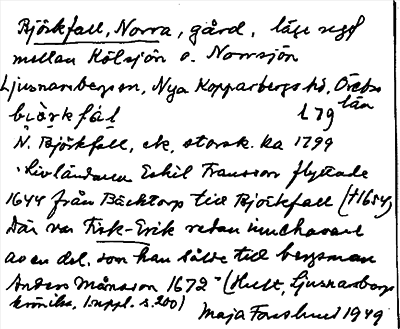 Björkfall, Norra, gård, läge
mellan Kölsjön o. Norrsjön
Ljusnarsbergs sn, Nya Kopparbergs hd, Örebro
län
björkfàl 179
N. Björkfall, ek. storsk. ka 1799
"Livländaren Eskil Fransson flyttade
1644 från Bäcktorp till Björkfall (†1654)
Där var Fisk-Erik redan innehavare
av en del, som han sålde till bergsman
Anders Månsson 1672" (Hult, Ljusnarsbergs
krönika, 1 suppl. s. 200)
Maja Forslund 1949